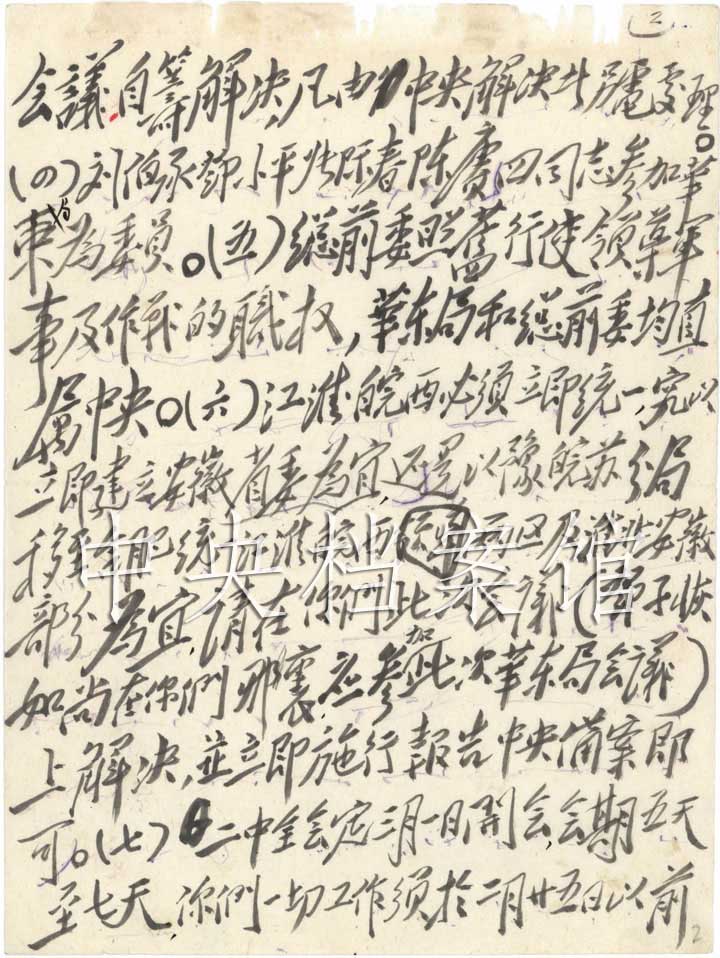 2
会議自筹解决,凡由中央解决者另電处理。
(四)刘伯承鄧小平张际春陈赓四同志参加華
東局為委員。(五)總前委照舊行使領導軍
事及作战的職权,華东局和總前委均直
属中央。(六)江淮皖西必须立即統一,究以
立即建立安徽省委為宜,还是以豫皖苏分局
移至合肥統一江淮皖西两区及淮北安徽
部分為宜,請在你們此次会議(鄧子恢
如尚在你們那裏,应参加此次華东局会議)
上解决,並立即施行報告中央備案即
可。(七)二中全会定三月一日開会,会期五天
至七天,你們一切工作须於二月廿五日以前
2
中央档案馆